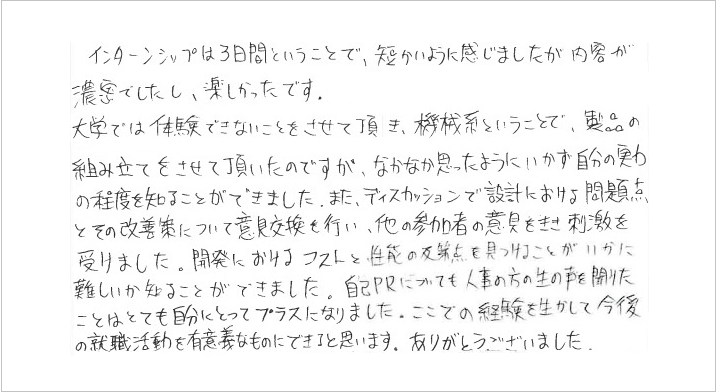 インターンシップは3日間ということで、短かいように感じましたが内容が
濃密でしたし、楽しかったです.
大学では体験できないことをさせて頂き、機械系ということで、製品の
組み立てをさせて頂いたのですが、なかなか思ったようにいかず自分の実力
の程度を知ることができました. また、ディスカッションで設計における問題点
とその改善案について意見交換を行い、他の参加者の意見をきき刺激を
受けました。開発におけるコストと、性能の交差点を見つけることがいかに
難しいか知ることができました。自己PRについても人事の方の生の声を聞けた
ことはとても自分にとってプラスになりました. ここでの経験を生かして今後
の就職活動を有意義なものにできると思います. ありがとうございました.